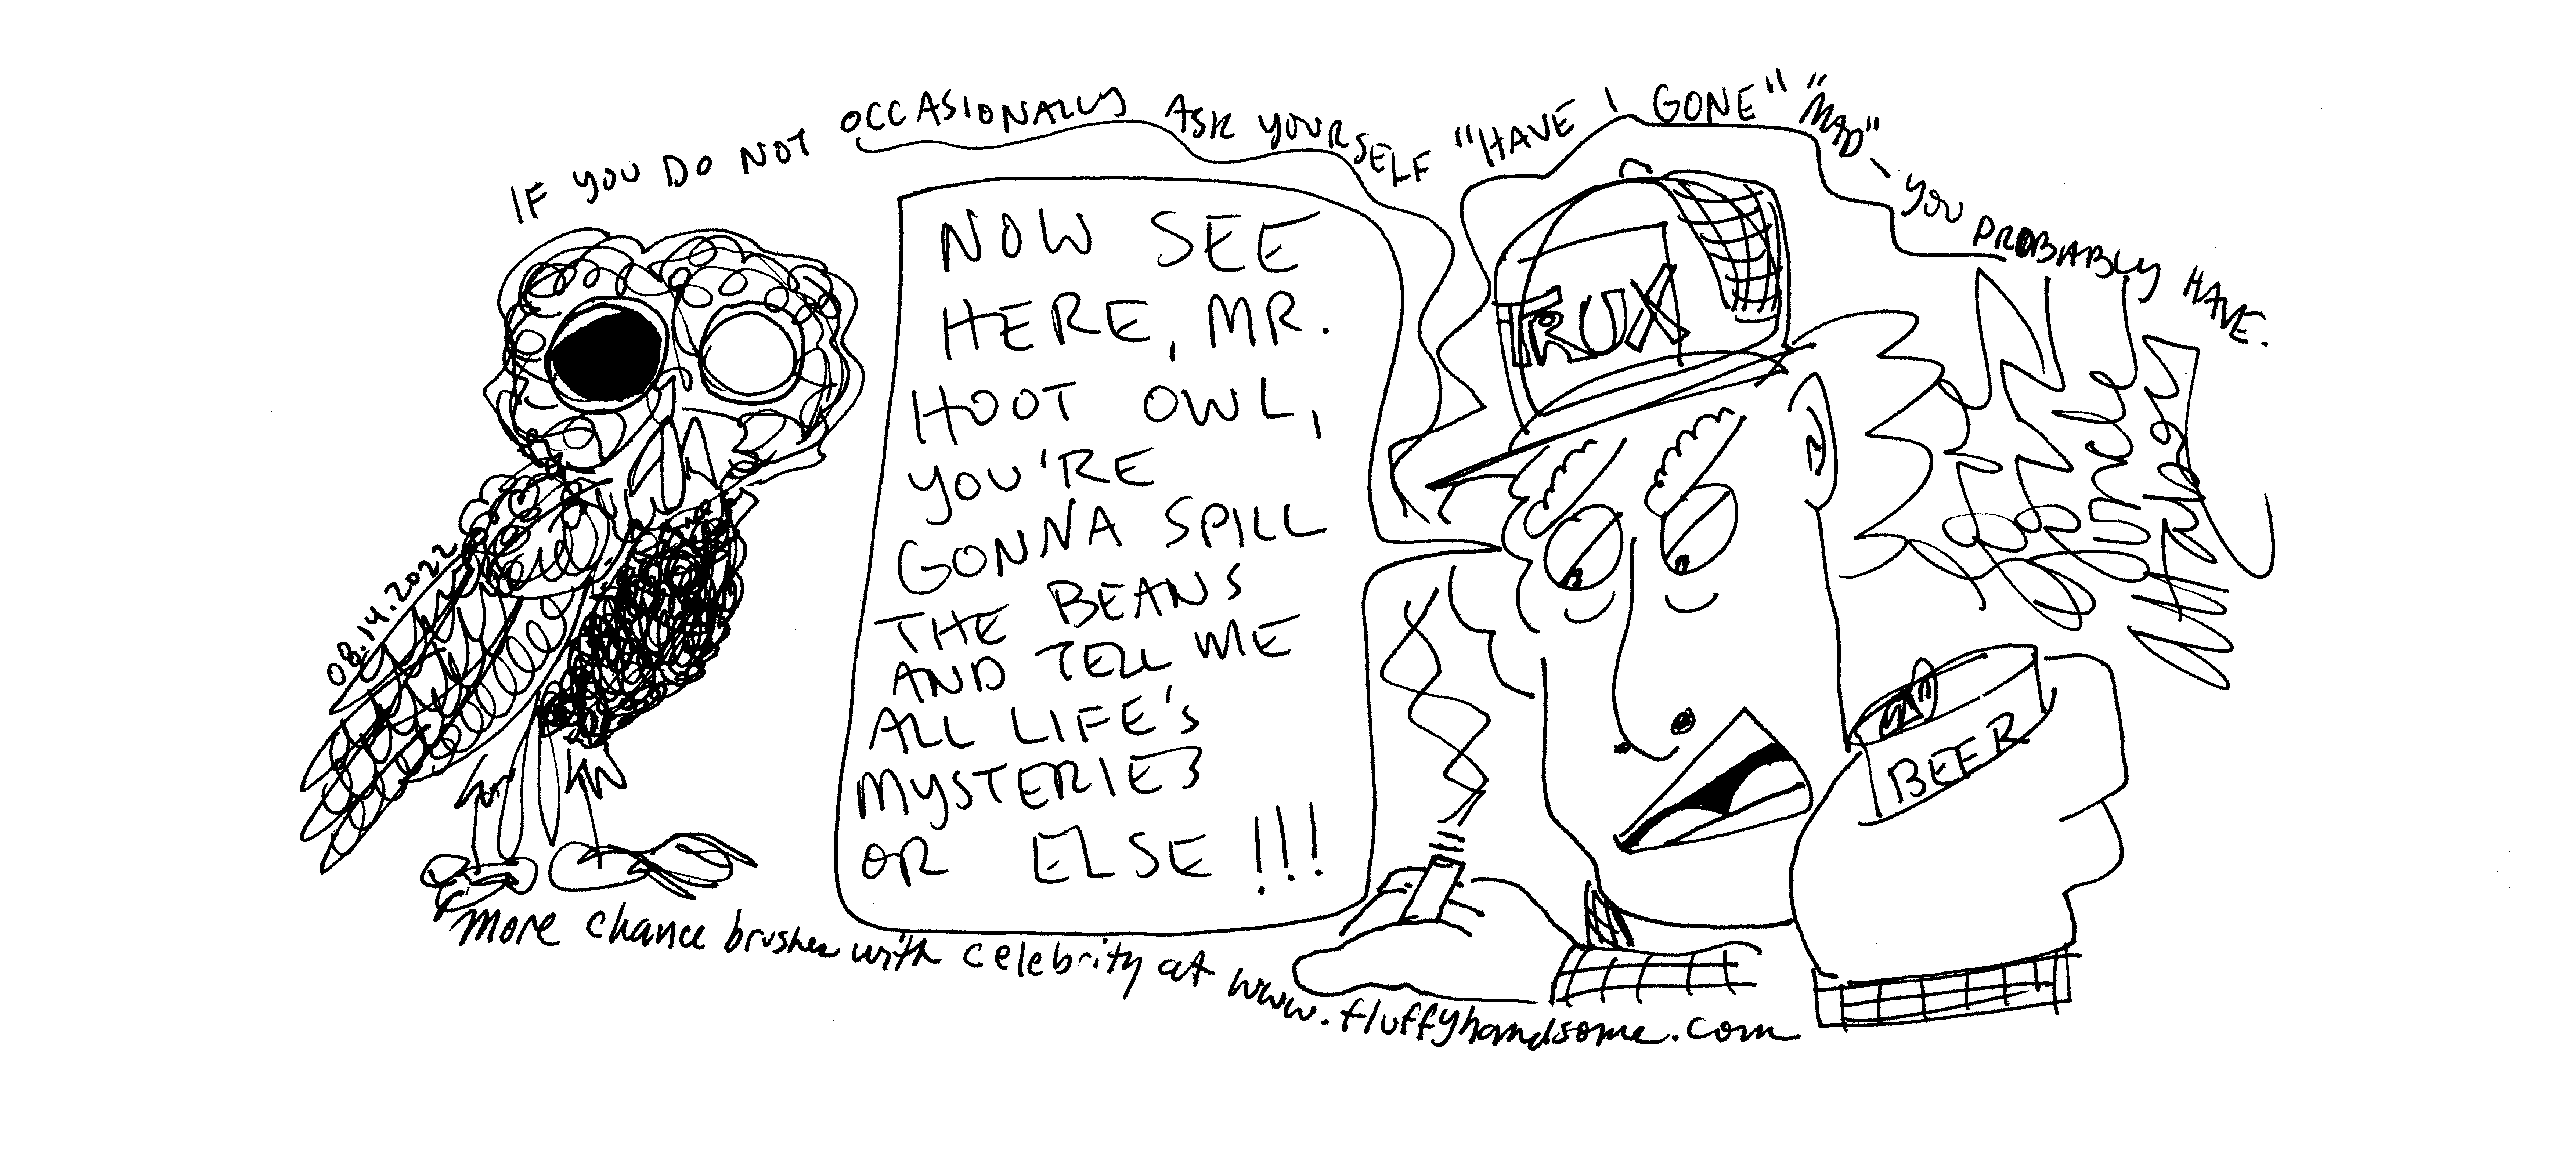 IF YOU DO NOT OCCASIONALLY ASK YOURSELF "HAVE I GONE" "MAD" - YOU PROBABLY HAVE.
NOW SEE
HERE, MR.
HOOT OWL,
YOU'RE
GONNA SPILL
THE BEANS
AND TELL ME
ALL LIFE'S
MYSTERIES
OR ELSE!!!
TRUX
BEER
08.14.2022
more chance brushes with celebrity at www.fluffyhandsome.com